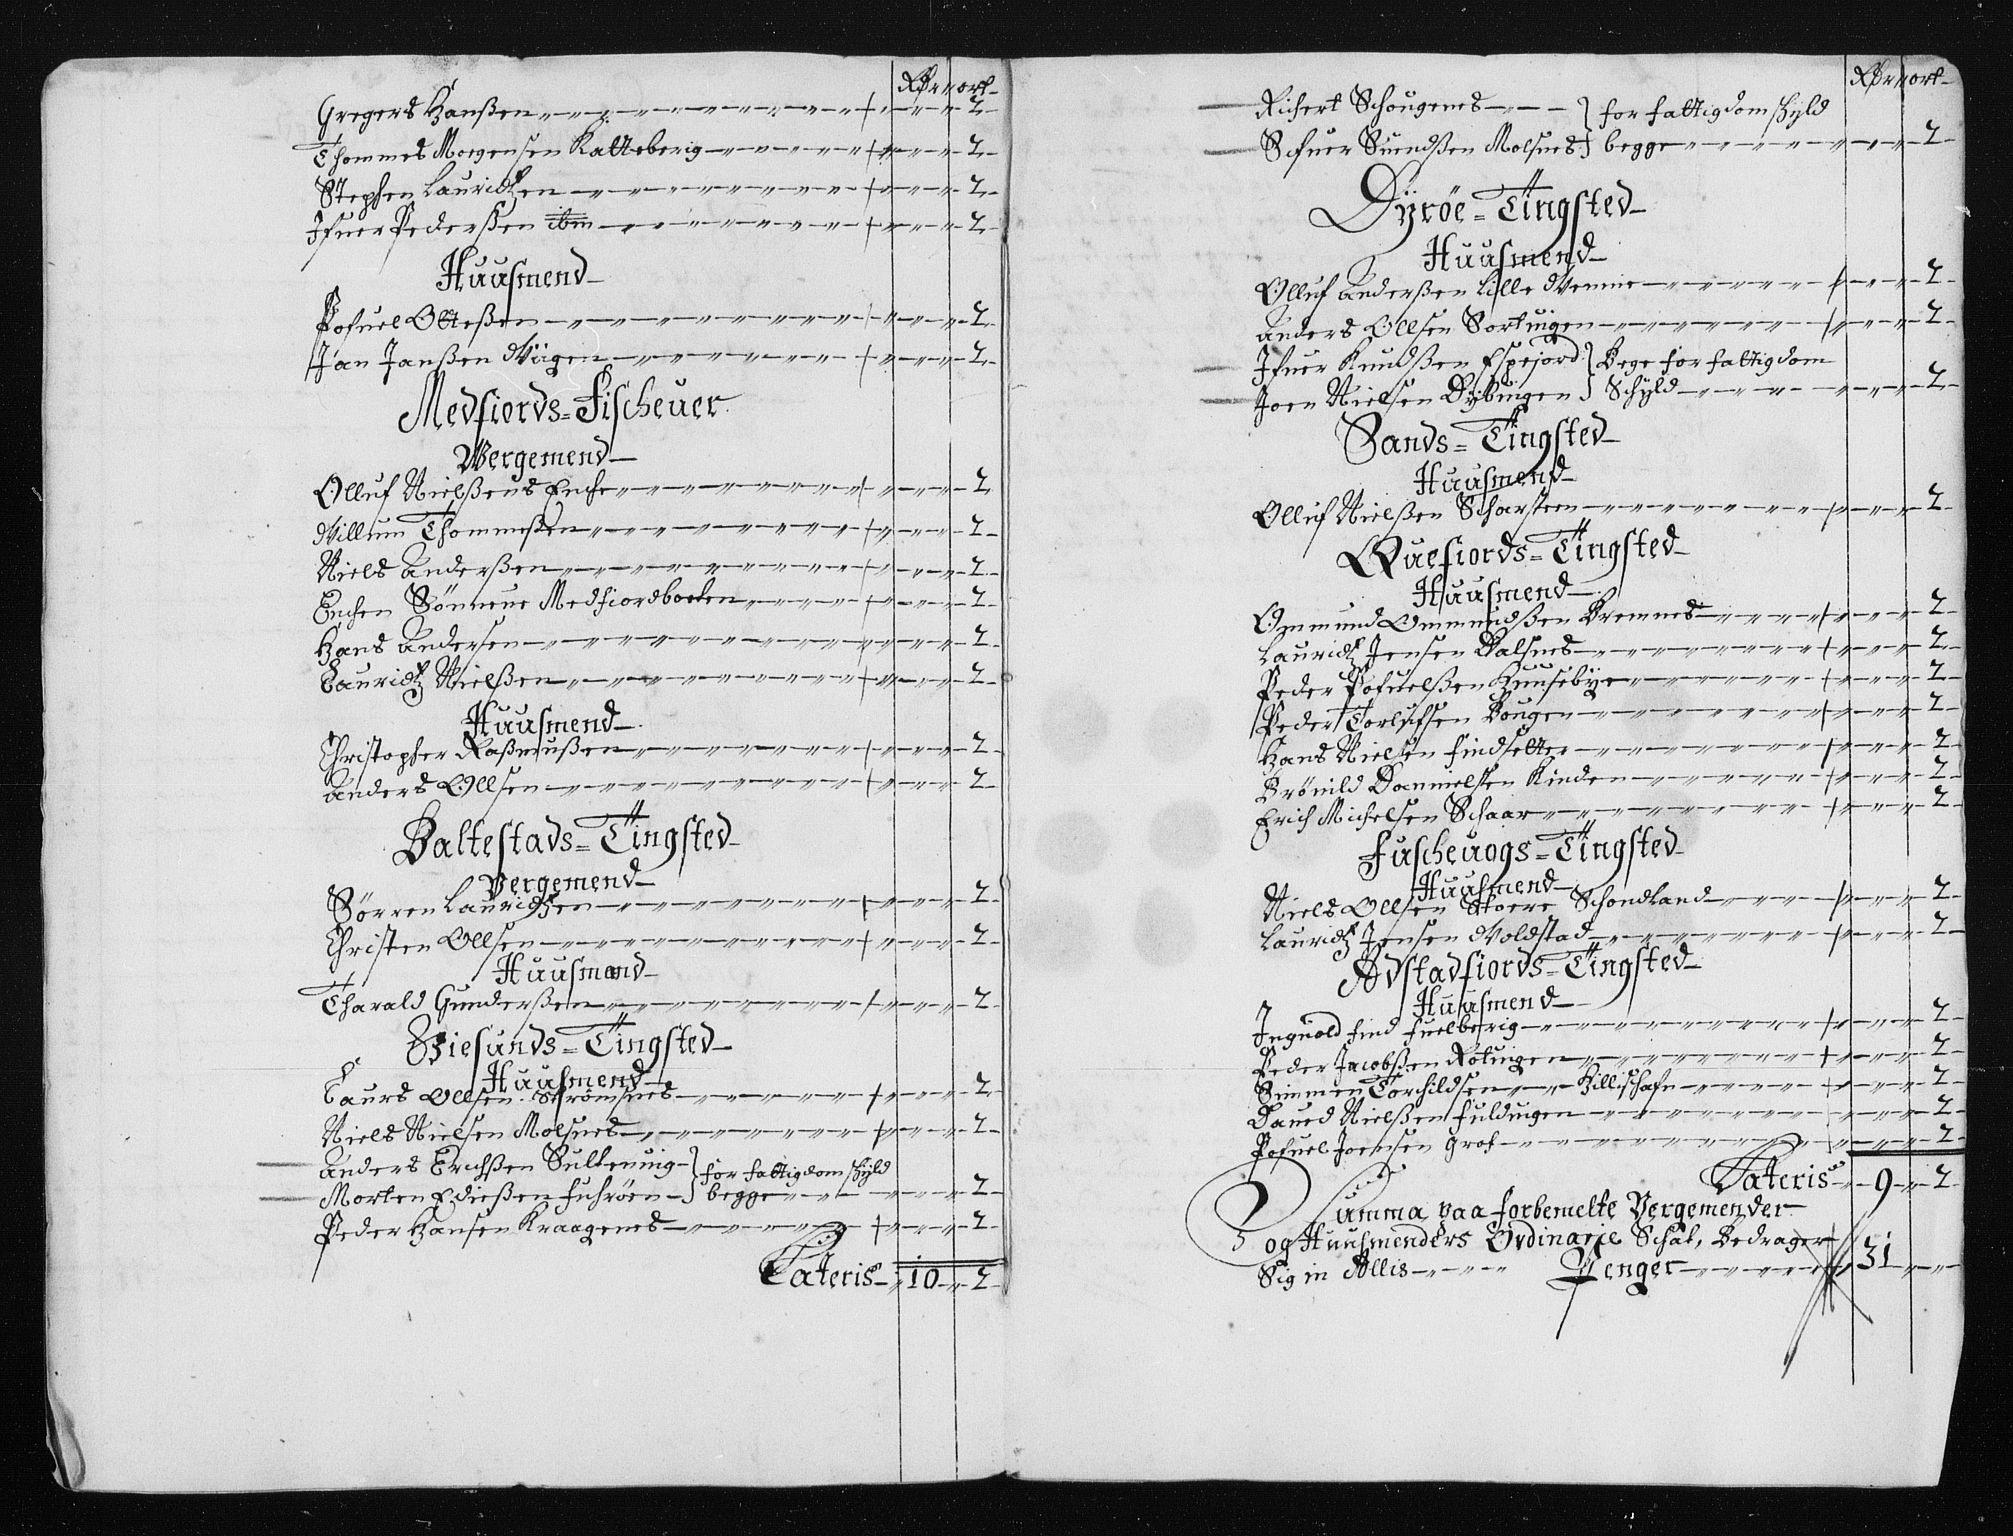 Rdr ort
Gregers Hanßen 2
Thommes Mogensen Katteberig 2
Stephen Lauridtzen 2
Ifuer Pederßen ibm 2
Huusmend
Pofuel Otteßen 2
Jan Janßen Wigen 2
Medfiords= Fischeuer
Wergemend
Olluf Nielßens Enche 2
Willum Thommeßen 2
Niels Anderßen 2
Enchen Sönneue Medfiordboeten 2
Hans Andersen 2
Lauridtz Nielßen 2
Huusmend
Christopher Raßmußen 2
Anders Ollsen 2
Baltestads= Tingsted
Vergemend
Sörren Lauridtzen 2
Christen Ollsen 2
Huusmend
Tharald Gunderßen 2
Giesunds= Tingsted
Huusmend
Laurs Ollsen Strömsnes 2
Niels Nielsen Molsnes 2
Anders Erichßen Sultenuig } for fattigdom skyld
Morten Edießen Fuhröen } begge 2
Peder Hansen Kraagenes 2
Lateris 10 2
Rdr ort
Richert Schougenes } for fattigdom skyld
Sifuer Suendßen Molsnes } begge 2
Dyröe= Tingsted
Huusmend
Olluf Anderßen Lille Wemme 2
Anders Ollsen Sortuigen 2
Ifuer Knudßen Espejord } Bege for fattigdom
Joen Nielsen Dybuigen } Schyld 2
Sands= Tingsted
Huusmend
Olluf Nielßen Scharsteen 2
Quefiords= Tingsted
Huusmend
Ommund Ommundßen Bremnes 2
Lauridtz Jensen Dalsnes 2
Peder Pofuelßen Huusebye 2
Peder Torlufsen Bougen 2
Hans Nielsen Findsetter 2
Brönild Dannielsen Kinden 2
Erich Michelsen Schaar 2
Fuscheuogs= Tingsted
Huusmend
Niels Ollsen Stoere Schondland 2
Lauridtz Jensen Woldstad 2
Astadfiords= Tingsted
Huusmend
Inguold Find Fuelberig 2
Peder Jacobßen Rotuigen 2
Simmen Torchildsen Billischafn 2
Daued Nielßen Fulduigen 2
Pofuel Joensen Grof 2
Lateris 9 2
Summa paa forbemelte Vergemender
og Huusmenders Ordinarie Schat, Bedrager
Sig in Allis Penger 31